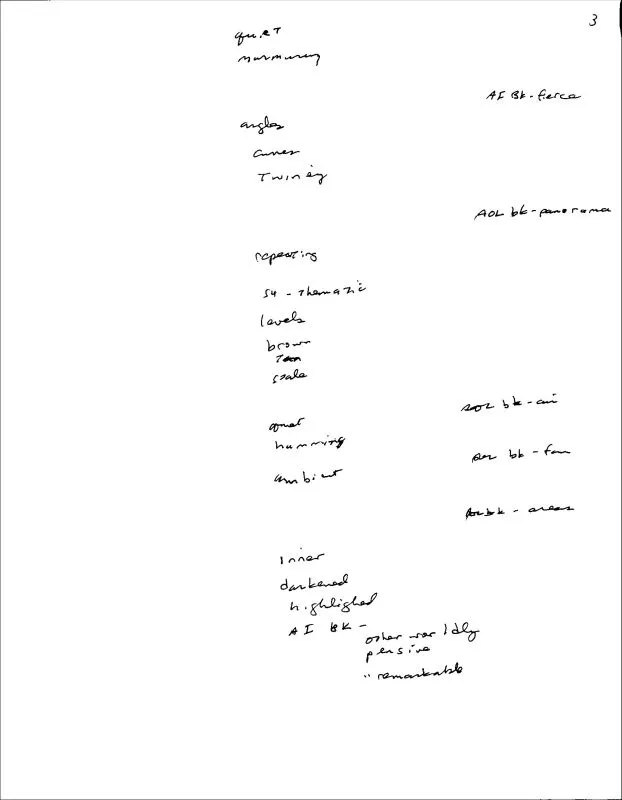 3
quiet
murmuring
AI BK - fierce
angles
curves
Twining
AOL bk - panorama
repeating
S4 - Thematic
levels
brown
Tan
scale
AOL bk -
quiet
humming
AOL bk - fan
ambient
AOL bk - areas
inner
darkened
highlighed
AI BK -
other worldly
pensive
" remarkable